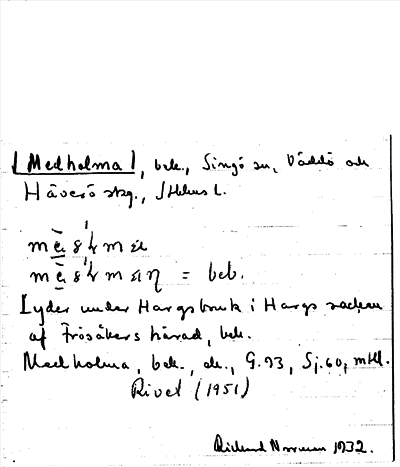 [Medholma], beb., Singö sn, Väddö och
Häverö skg., Sthlms l.
= beb.
Lyder under Hargsbruk i Hargs socken
af Frösåkers härad, beb.
Medholma, beb., G. 93, Sj. 60, mtl.
Rivet (1951)
Rickard 1932.